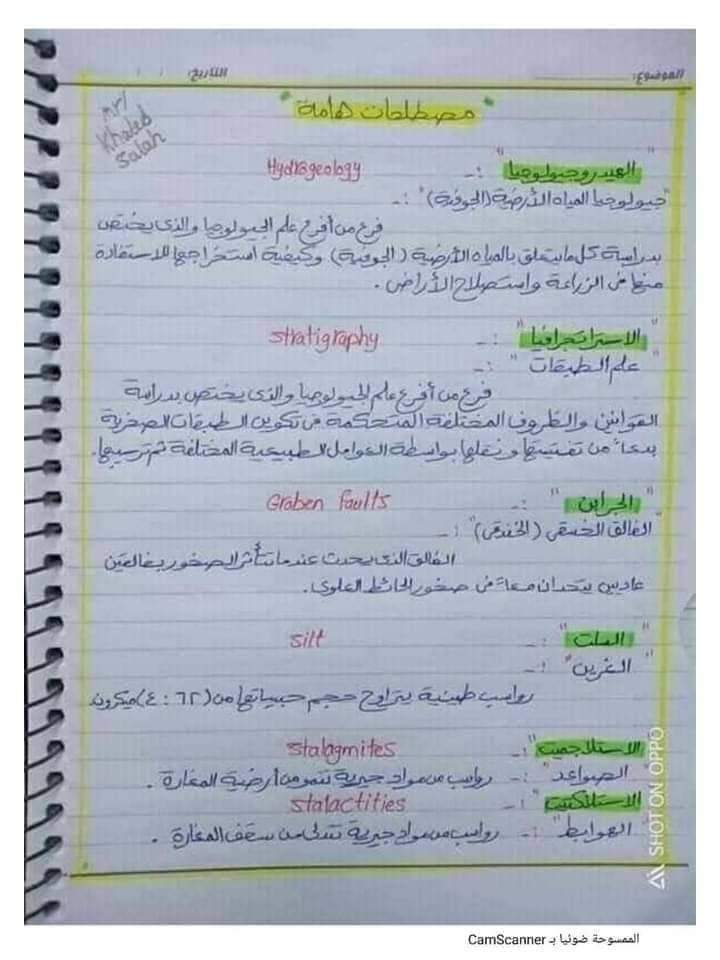 الموضوع:
التاريخ: / /
mr/
Khaled
Salah
" مصطلحات هامة "
"الهيدروجيولوجيا" :- Hydrogeology
"جيولوجيا المياه الأرضية (الجوفية)" :-
فرع من أفرع علم الجيولوجيا والذى يختص
بدراسة كل ما يتعلق بالمياه الأرضية (الجوفية) وكيفية استخراجها للاستفادة
منها فى الزراعة واستصلاح الأراضى .
"الاستراتجرافيا" :- stratigraphy
"علم الطبقات" :-
فرع من أفرع علم الجيولوجيا والذى يختص بدراسة
القوانين والظروف المختلفة المتحكمة فى تكوين الطبقات الصخرية
بدءاً من تفتيتها ونقلها بواسطة العوامل الطبيعية المختلفة ثم ترسيبها.
"الجرابن" :- Graben faults
"الفالق الخسفى (الخندقى)" :-
الفالق الذى يحدث عندما تتأثر الصخور بفالقين
عاديين يتحدان معاً فى صخور الحائط العلوى.
"السلت" :- silt
"الغرين" :-
رواسب طينية يتراوح حجم حبيباتها من (٦٢ : ٤) ميكرون
"الاستلاجميت" :- stalagmites
"الصواعد" :- رواسب من مواد جيرية تنمو من أرضية المغارة .
"الاستلاكتيت" :- stalactities
"الهوابط" :- رواسب من مواد جيرية تتدلى من سقف المغارة .
SHOT ON OPPO
الممسوحة ضوئيا بـ CamScanner